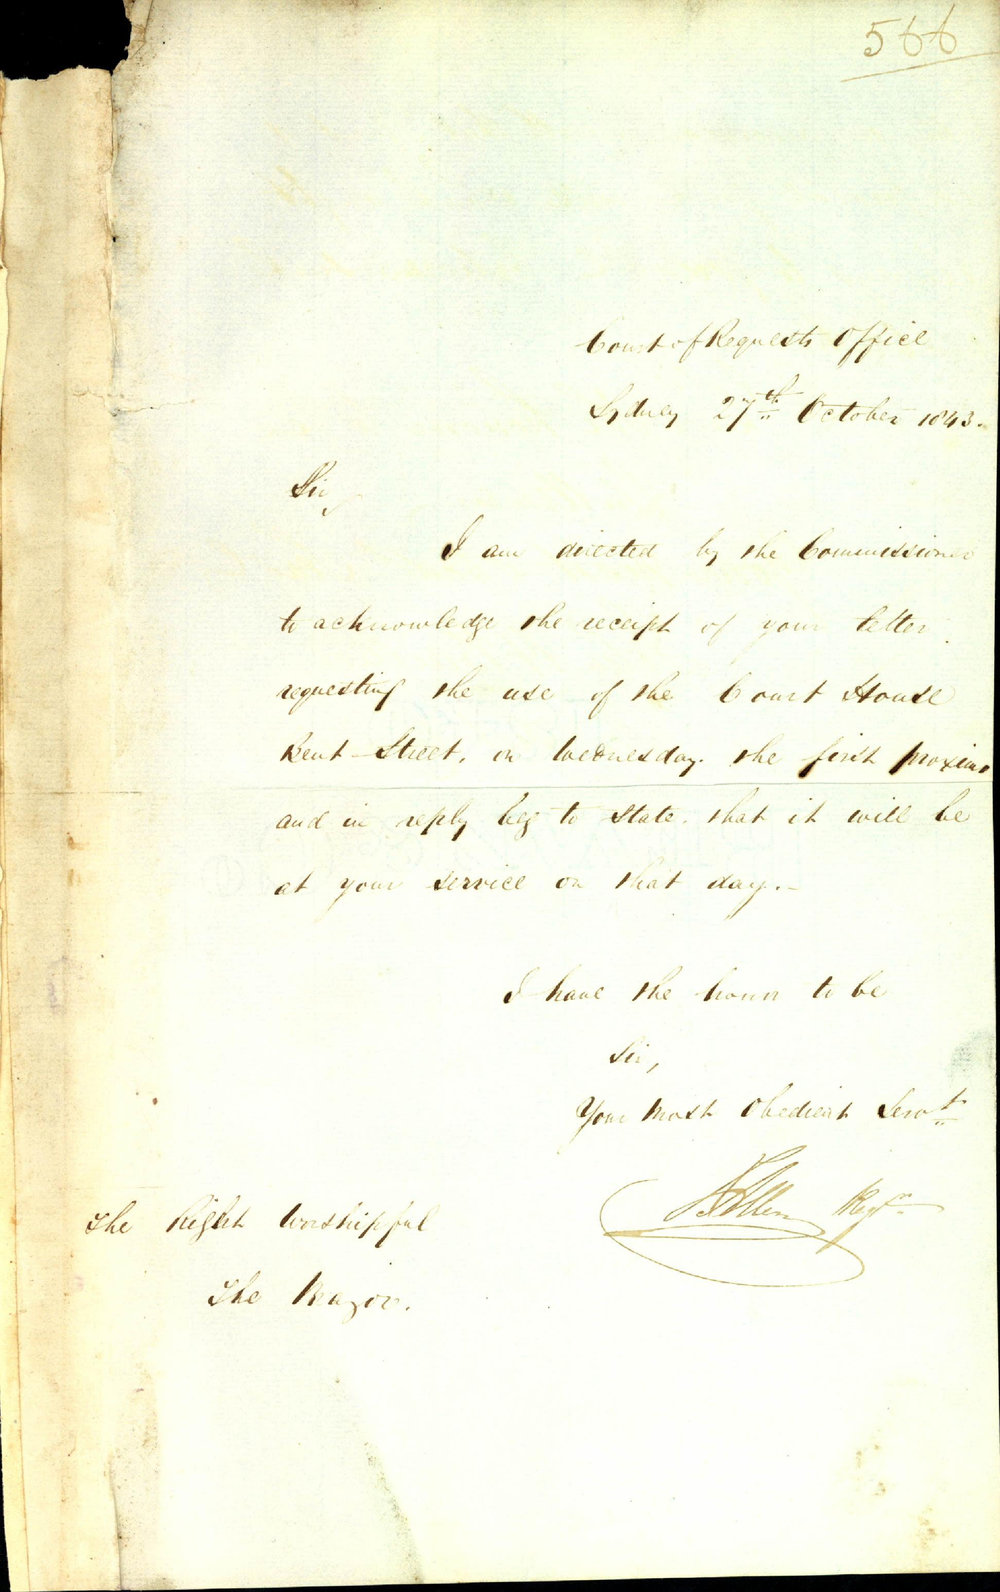 566
Court of Requests Office
Sydney 27th October 1843.
Sir,
I am directed by the Commissioner
to acknowledge the receipt of your letter
requesting the use of the Court House
Bent-Street, on Wednesday. the first proximo
and in reply beg to state. that it will be
at your service on that day.-
I have the honor to be
Sir,
Your Most Obedient Servt
Regr
The Right Worshipful
The Mayor.